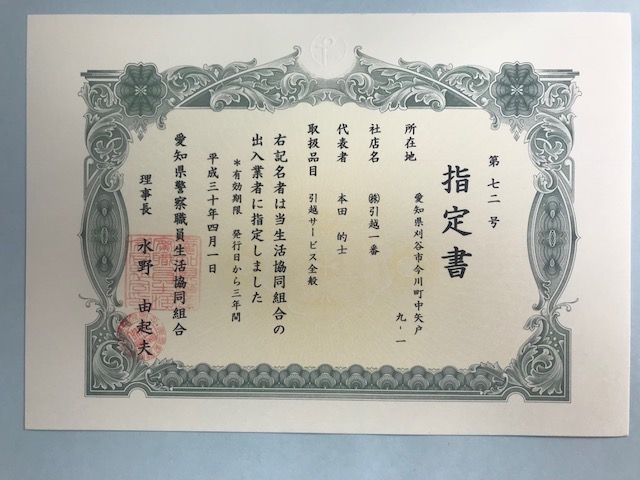 第七二号
指定書
所在地 愛知県刈谷市今川町中矢戸
九-一
社店名 ㈱引越一番
代表者 本田 的士
取扱品目 引越サービス全般
右記名者は当生活協同組合の
出入業者に指定しました
*有効期限 発行日から三年間
平成三十年四月一日
愛知県警察職員生活協同組合
理事長 水野 由起夫